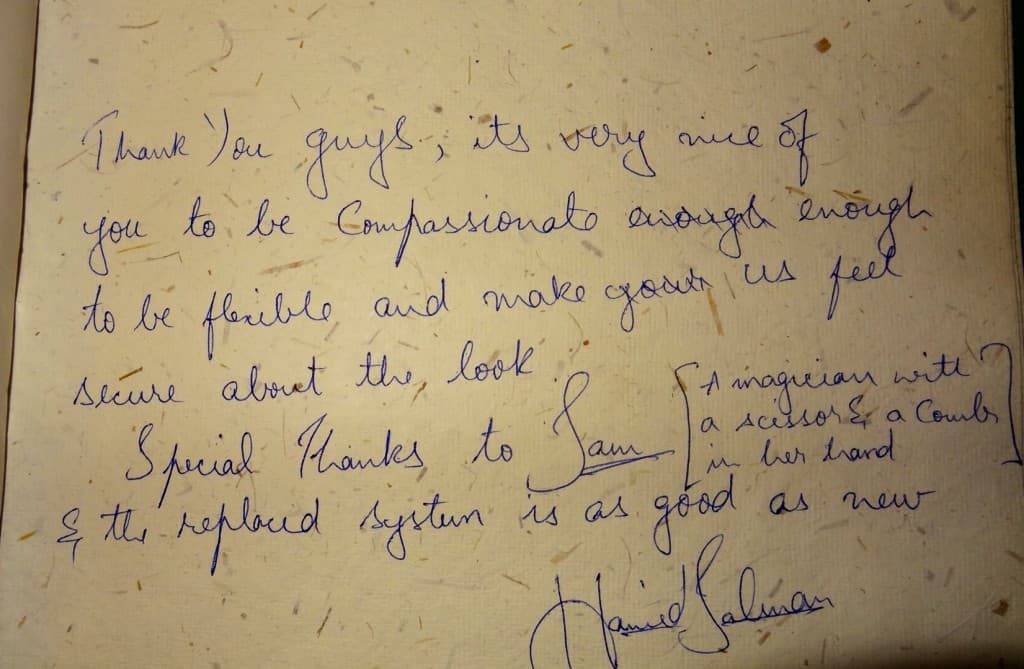 Thank You guys, its very nice of
you to be Compassionate enough enough
to be flexible and make your us feel
secure about the look.
Special Thanks to Sam [A magician with
a scissor & a Comb
in her hand]
& the replaced system is as good as new
Hamid Salman